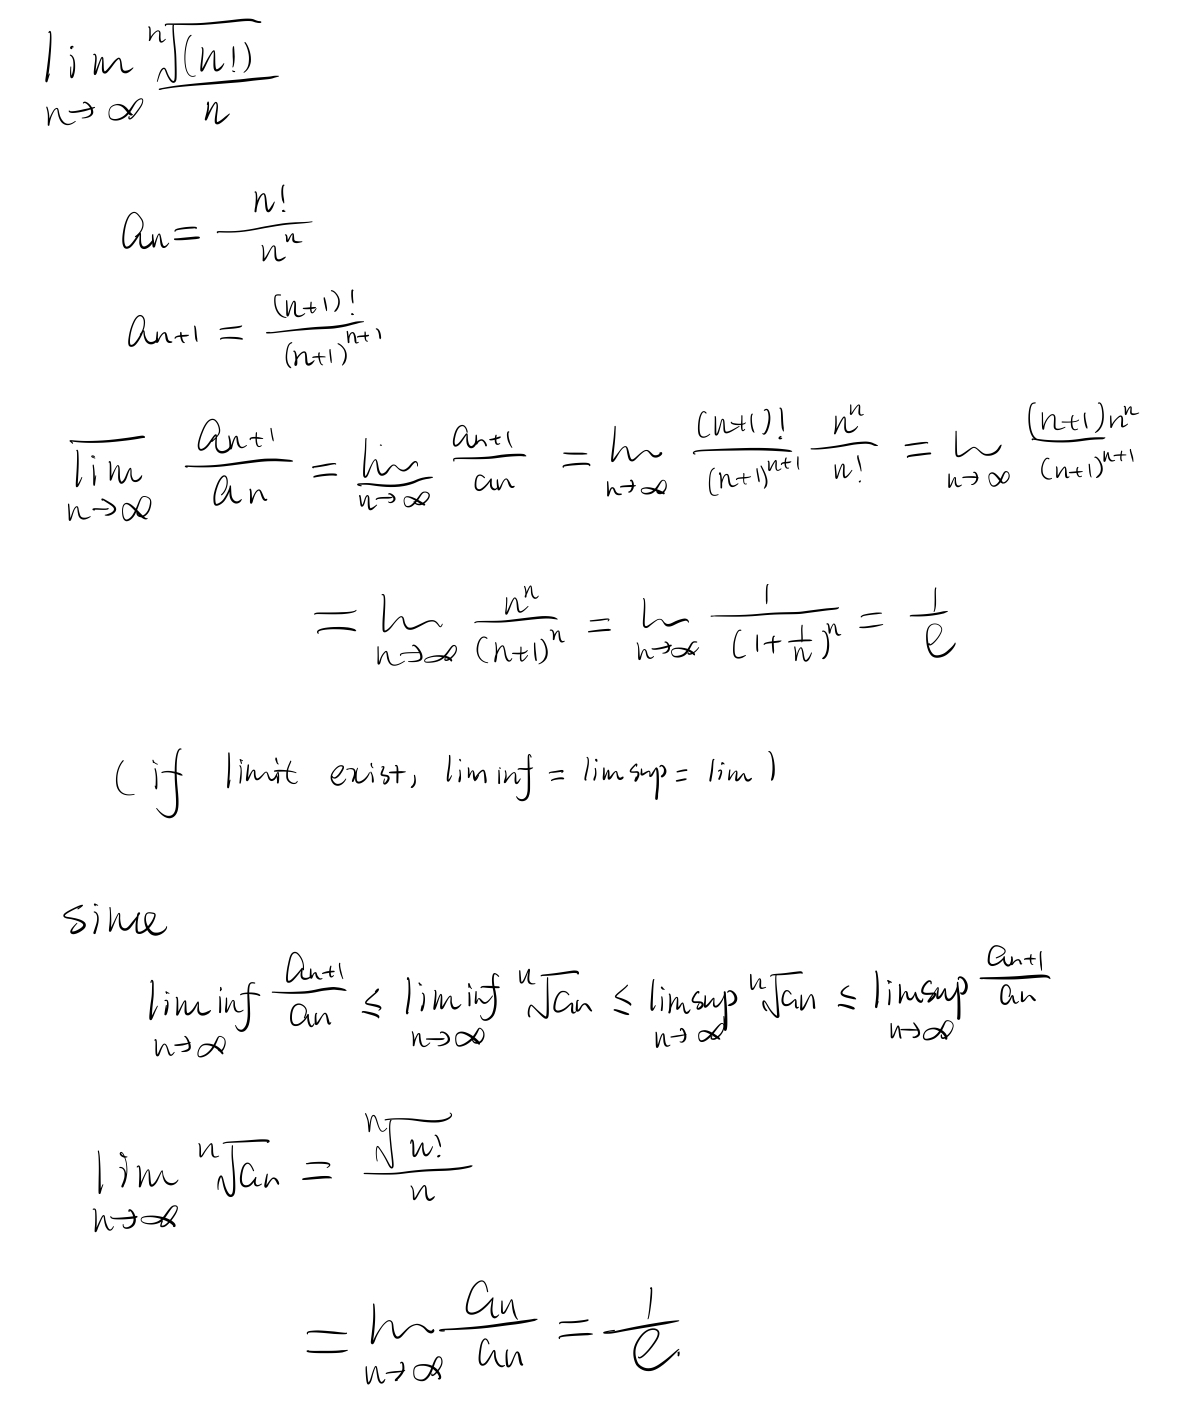 lim_{n→∞} \frac{\sqrt[n]{(n!)}}{n}
a_n = \frac{n!}{n^n}
a_{n+1} = \frac{(n+1)!}{(n+1)^{n+1}}
\overline{lim}_{n→∞} \frac{a_{n+1}}{a_n} = \underline{lim}_{n→∞} \frac{a_{n+1}}{a_n} = lim_{n→∞} \frac{(n+1)!}{(n+1)^{n+1}} \frac{n^n}{n!} = lim_{n→∞} \frac{(n+1)n^n}{(n+1)^{n+1}}
= lim_{n→∞} \frac{n^n}{(n+1)^n} = lim_{n→∞} \frac{1}{(1+\frac{1}{n})^n} = \frac{1}{e}
(if limit exist, lim inf = lim sup = lim)
since
lim inf_{n→∞} \frac{a_{n+1}}{a_n} ≤ lim inf_{n→∞} \sqrt[n]{a_n} ≤ lim sup_{n→∞} \sqrt[n]{a_n} ≤ lim sup_{n→∞} \frac{a_{n+1}}{a_n}
lim_{n→∞} \sqrt[n]{a_n} = \frac{\sqrt[n]{n!}}{n}
= lim_{n→∞} \frac{a_n}{a_n} = \frac{1}{e}